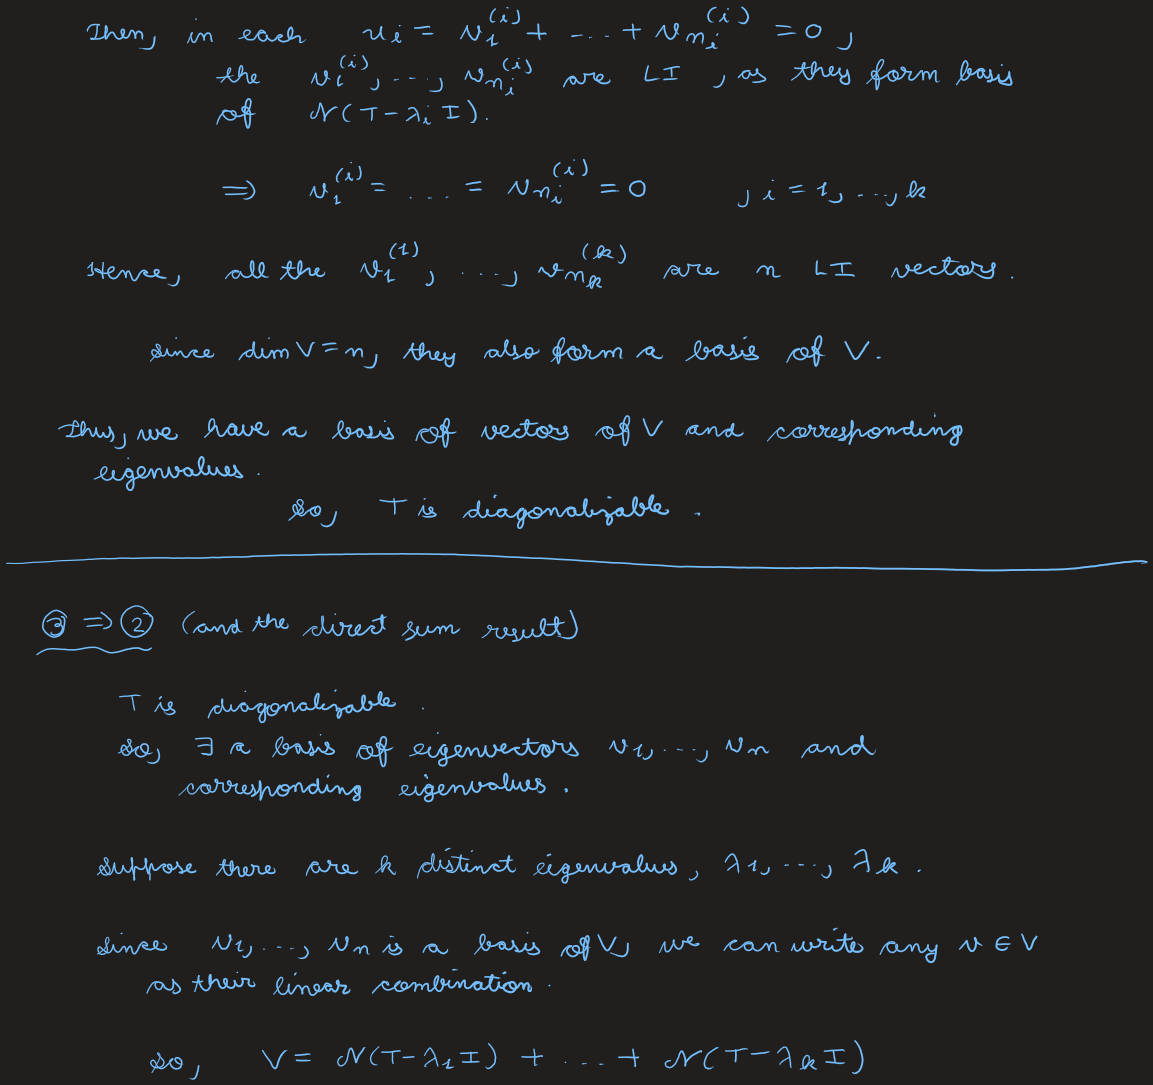 Then, in each u_i = v_1^(i) + ... + v_{n_i}^(i) = 0,
the v_i^(i), ..., v_{n_i}^(i) are LI, as they form basis
of N(T-λ_i I).
⇒ v_1^(i) = .... = v_{n_i}^(i) = 0 , i = 1, ..., k
Hence, all the v_1^(1), ..., v_{n_k}^(k) are n LI vectors.
since dim V = n, they also form a basis of V.
Thus, we have a basis of vectors of V and corresponding
eigenvalues.
so, T is diagonalizable.
③ ⇒ ② (and the direct sum result)
T is diagonalizable.
so, ∃ a basis of eigenvectors v_1, ..., v_n and
corresponding eigenvalues.
Suppose there are k distinct eigenvalues, λ_1, ..., λ_k.
Since v_1, ..., v_n is a basis of V, we can write any v ∈ V
as their linear combination.
so, V = N(T-λ_1 I) + ... + N(T-λ_k I)